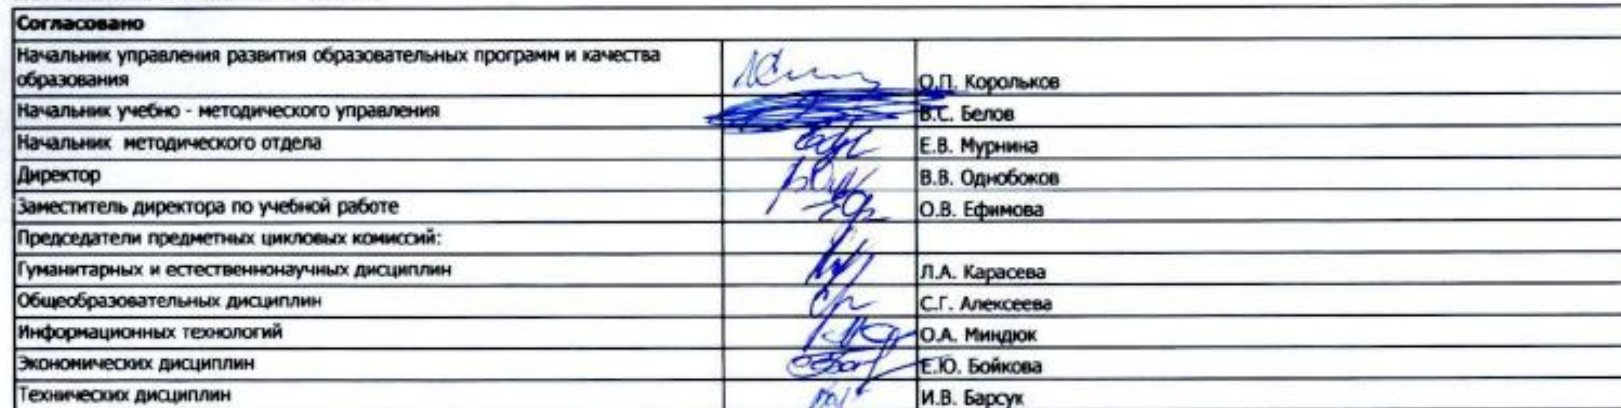 Согласовано
Начальник управления развития образовательных программ и качества
образования
О.П. Корольков
Начальник учебно - методического управления
В.С. Белов
Начальник методического отдела
Е.В. Мурнина
Директор
В.В. Однобоков
Заместитель директора по учебной работе
О.В. Ефимова
Председатели предметных цикловых комиссий:
Гуманитарных и естественнонаучных дисциплин
Л.А. Карасева
Общеобразовательных дисциплин
С.Г. Алексеева
Информационных технологий
О.А. Миндюк
Экономических дисциплин
Е.Ю. Бойкова
Технических дисциплин
И.В. Барсук